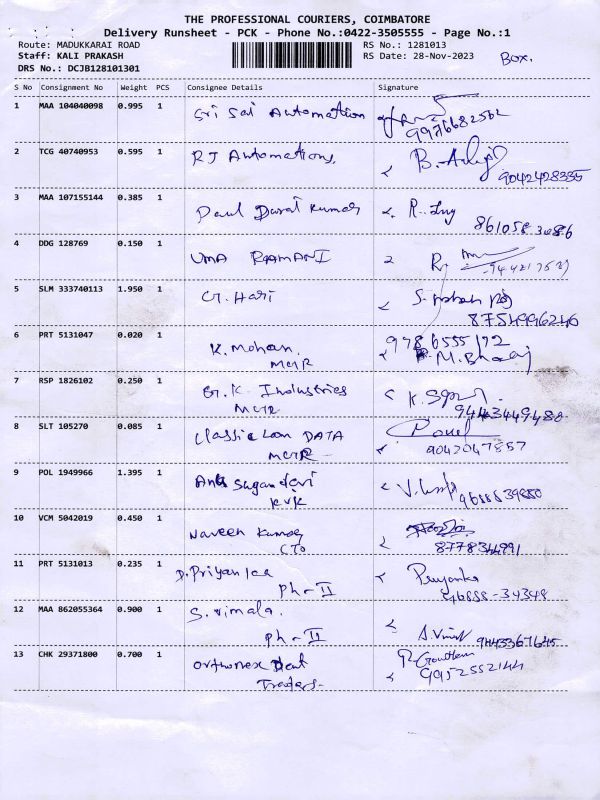 THE PROFESSIONAL COURIERS, COIMBATORE
Delivery Runsheet - PCK - Phone No.:0422-3505555 - Page No.:1
Route: MADUKKARAI ROAD RS No.: 1281013
Staff: KALI PRAKASH RS Date: 28-Nov-2023 Box.
DRS No.: DCJB128101301
S No Consignment No Weight PCS Consignee Details Signature
1 MAA 104040098 0.995 1 Sri Sai Automation
9976682562
2 TCG 40740953 0.595 1 RJ Automations.
9042428355
3 MAA 107155144 0.385 1 Paul Durai Kumar
4 DDG 128769 0.150 1 UMA RAAMANI
5 SLM 333740113 1.950 1 G. Hari
8754996246
6 PRT 5131047 0.020 1 K. Mohan. 9786555172
MCR
7 RSP 1826102 0.250 1 G.K. Industries
MCR 9443449488
8 SLT 105270 0.085 1 Classic Lan DATA
MCR 9042047857
9 POL 1949966 1.395 1 Sugandevi
KVK 9688839880
10 VCM 5042019 0.450 1 Naveen Kumar
CTO 8778344891
11 PRT 5131013 0.235 1 D. Priyanka Priyanka
Ph-II 96888-34348
12 MAA 862055364 0.900 1 S. Vimala.
Ph-II
13 CHK 29371800 0.700 1 Orthonex Dent
Traders- 9952552144